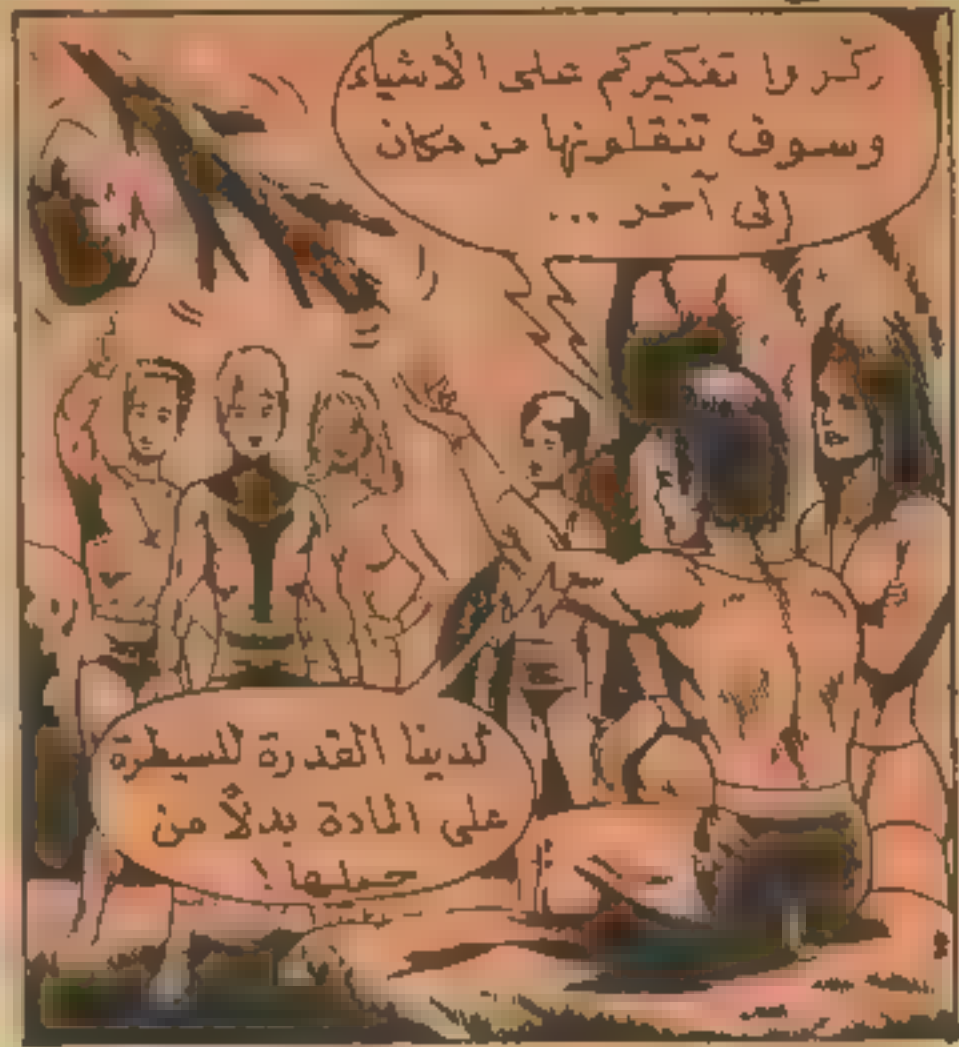 ركّزوا تفكيركم على الأشياء
وسوف تنقلونها من مكان
إلى آخر ...
لدينا القدرة للسيطرة
على المادة بدلاً من
حملها !